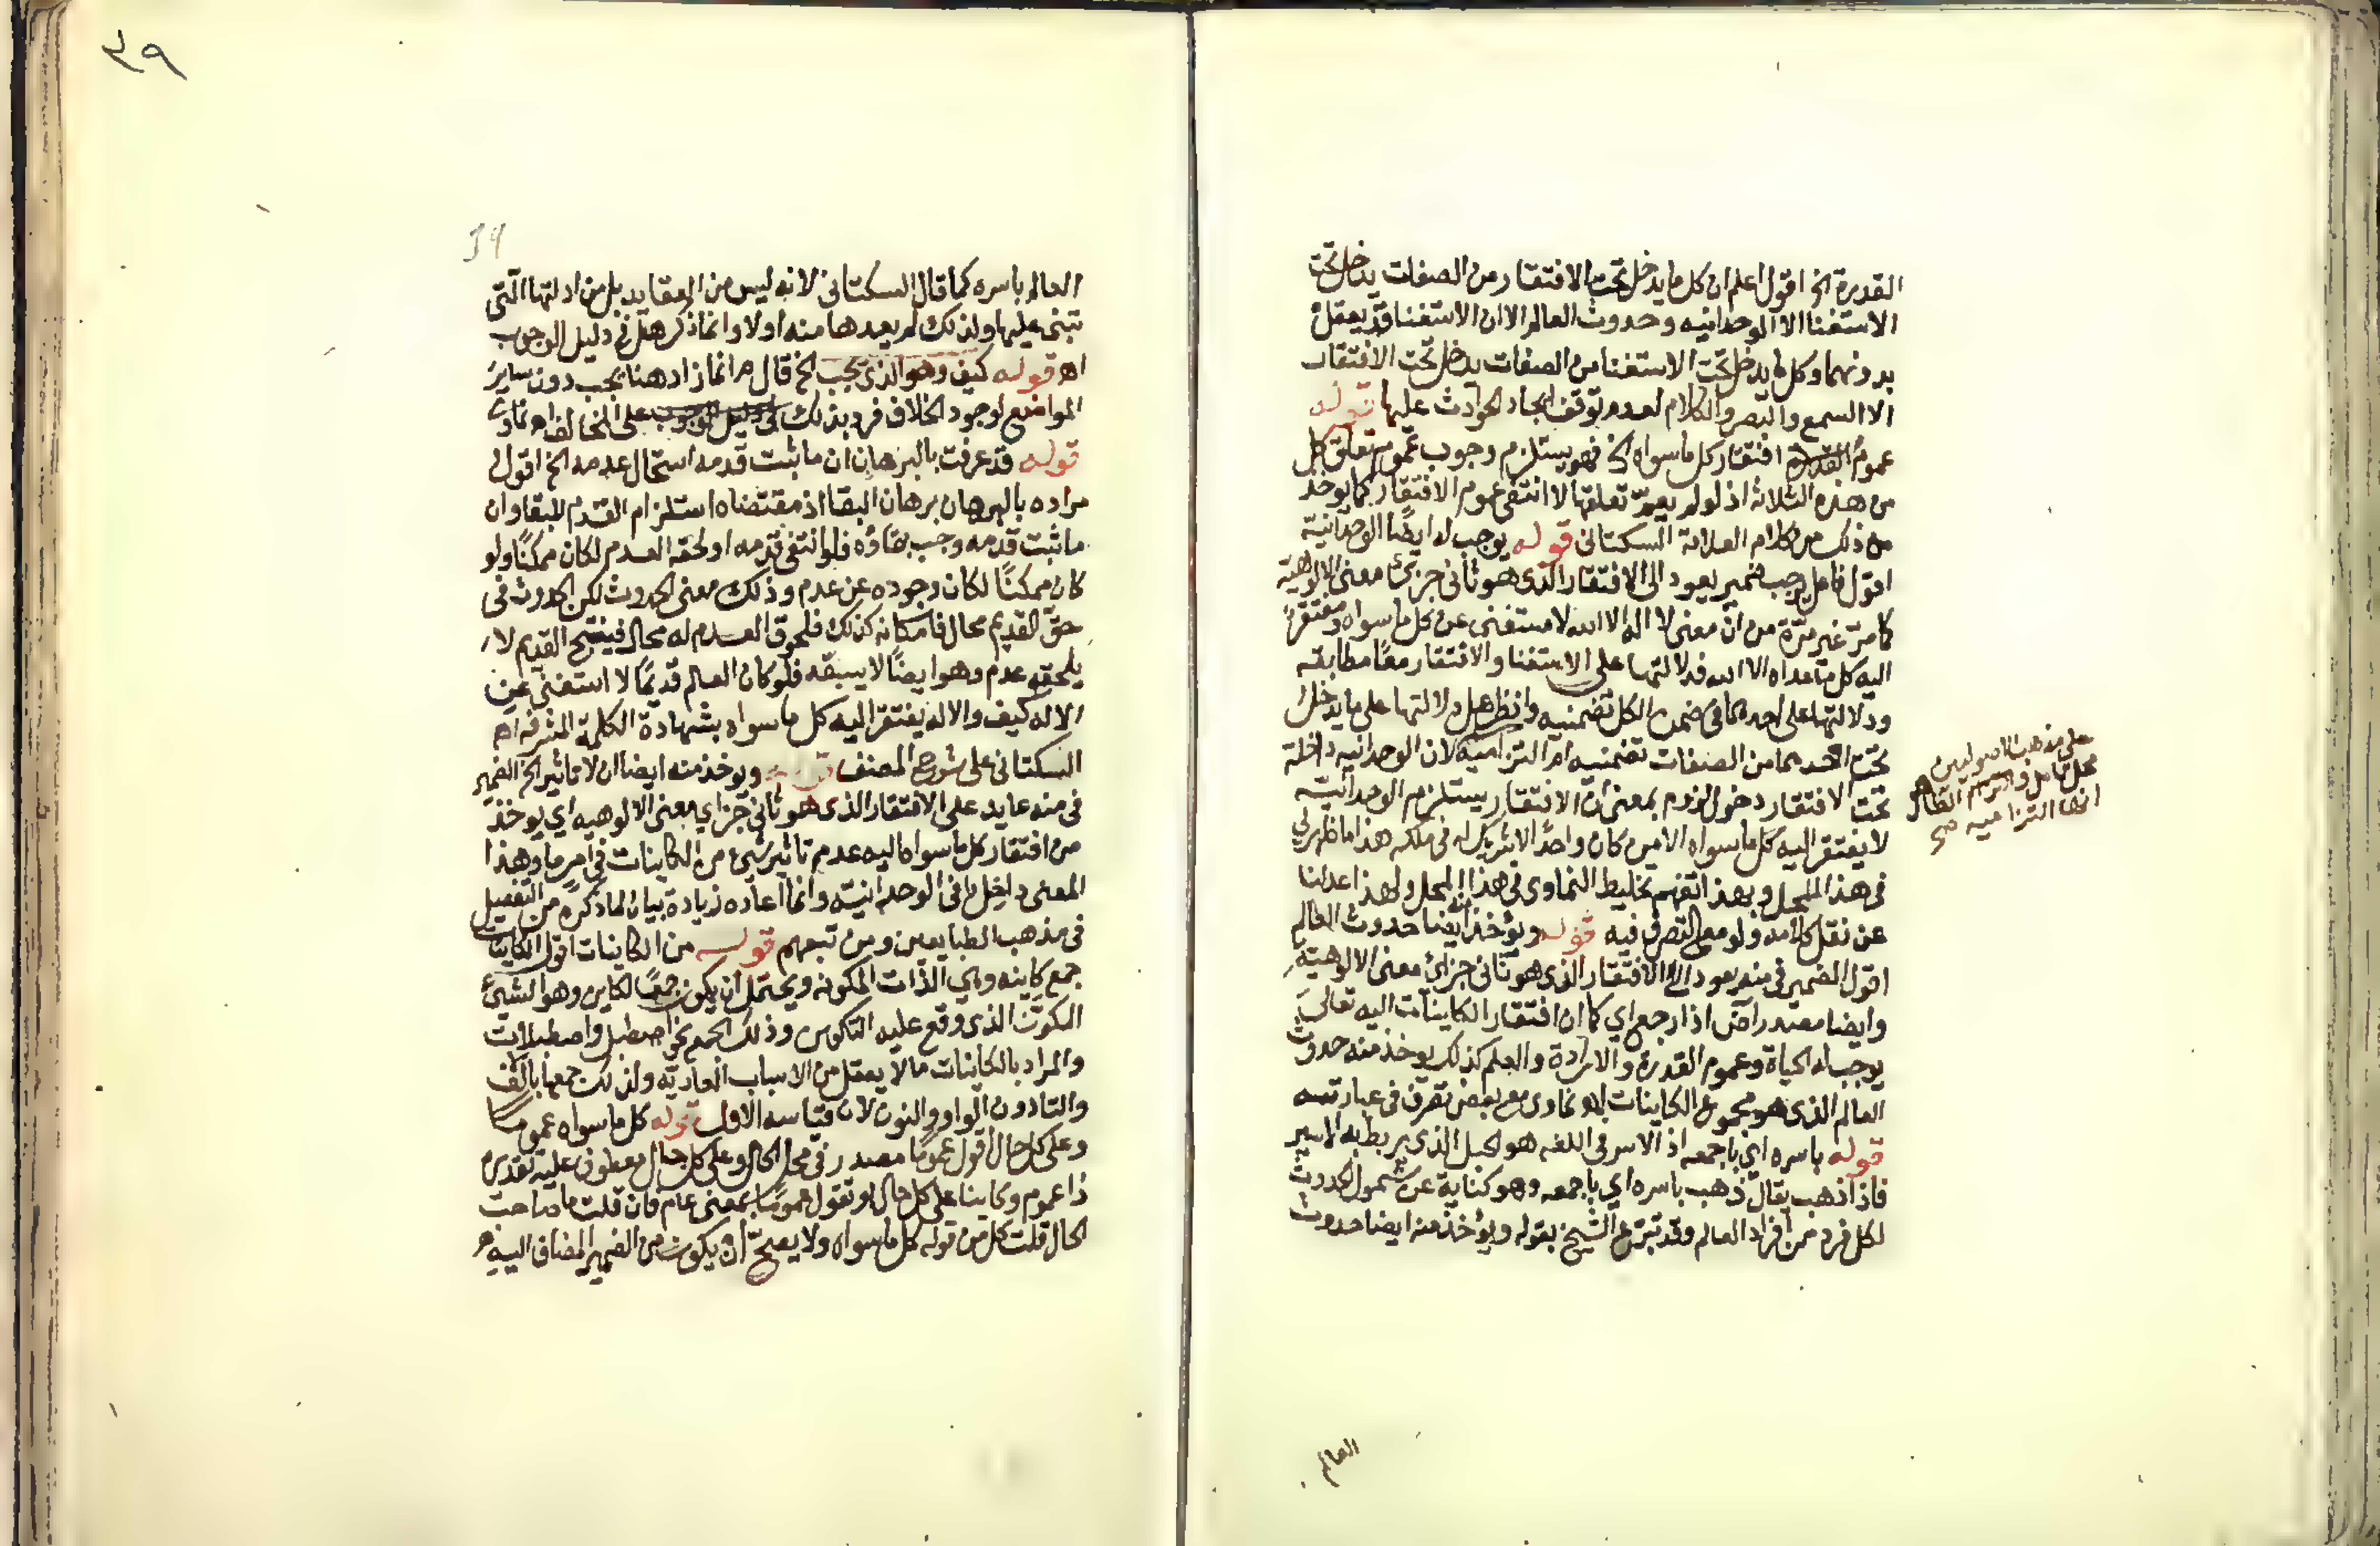 القدرة الخ اقول اعلم ان كل ما يدخل تحت الافتقار من الصفات يدخل تحت
الاستغنا الا الوحدانيه وحدوث العالم الا ان الاستغنا قد يعقل
بدونهما وكل ما يدخل تحت الاستغنا من الصفات يدخل تحت الافتقار
الا السمع والبصر والكلام لعدم توقف ايجاد الحوادث عليها قوله
عموم القدرة افتقار كل ما سواه الخ فهو يستلزم وجوب عموم تعلق كل
من هذه الثلاثة اذ لو لم يعم تعلقها لانتفى عموم الافتقار كما يوخذ
من ذلك من كلام العلامة السكتاني قوله يوجب له ايضا الوحدانية
اقول فاعل يوجب ضمير يعود الى الافتقار الذى هو ثانى جزئ معنى الالوهية
كما مر غير مرة من ان معنى لا اله الا الله لا مستغنى عن كل ما سواه ومفتقرا
اليه كل ما عداه الا الله فدلالتها على الاستغنا والافتقار معا مطابقه
ودلالتها على احدهما فى ضمن الكل تضمنيه وانظر هل دلالتها على ما يدخل
تحت احدهما من الصفات تضمنيه ام التزاميه لان الوحدانيه داخلة
تحت الافتقار دخول لزوم بمعنى ان الافتقار يستلزم الوحدانية
لا يفتقر اليه كل ما سواه الا من كان واحدا لا شريك له فى ملكه هذا ما ظهر لي
فى هذا المحل وبهذا تفهم تخليط النماوى فى هذا المحل ولهذا عدلنا
عن نقل كلامه ولو مع التصرف فيه قوله ويؤخذ منه ايضا حدوث العالم
اقول الضمير فى منه يعود الى الافتقار الذى هو ثانى جزئ معنى الالوهية
وايضا مصدر آض اذا رجع اي كما ان افتقار الكاينات اليه تعالى
يوجب له الحياة وعموم القدرة والارادة والعلم كذلك يوخذ منه حدوث
العالم الذى هو مجموع الكاينات اهـ نماوى مع بعض تصرف فى عبارته
قوله باسره اي باجمعه اذ الاسر فى اللغه هو الحبل الذى يربط به الاسير
فاذا ذهب يقال ذهب باسره اي باجمعه وهو كناية عن شمول الحدوث
لكل فرد من افراد العالم وقد تبرع الشيخ بقوله ويؤخذ منه ايضا حدوث
على مذهب الاصوليين
محل تامل القظاهر
انها التزاميه صح
العالم
٣٩
39
العالم باسره كما قال السكتاني لانه ليس من العقايد بل من ادلتها التى
تبنى عليها ولذلك لم يعدها منه اولا وانما ذكر هل فى دليل الوجوب
اهـ قوله كيف وهو الذى يجب الخ قال م انما زاد هنا يجب دون ساير
المواضع لوجود الخلاف فرد بذلك على المخالف اهـ نماوى
قوله قد عرفت بالبرهان ان ما ثبت قدمه استحال عدمه الخ اقول
مراده بالبرهان برهان البقا اذ مقتضاه استلزام القدم للبقا وان
ما ثبت قدمه وجب بقاؤه فلو انتفى قدمه او لحقه العدم لكان ممكنا ولو
كان ممكنا لكان وجوده عن عدم وذلك معنى الحدوث لكن الحدوث فى
حق القديم محال فامكانه كذلك فلحوق العدم له محال فينتج القديم لا
يلحقه عدم وهو ايضا لا يسبقه فلو كان العالم قديما لاستغنى عن
الاله كيف والاله يفتقر اليه كل ما سواه بشهادة الكلمة المشرفه اهـ
السكتانى على شرح المصنف قوله ويوخذ منه ايضا ان لا تاثير الخ الضمير
فى منه عايد على الافتقار الذى هو ثانى جزاي معنى الالوهيه اي يوخذ
من افتقار كل ما سواه اليه عدم تاثير شئ من الكاينات فى امر ما وهذا
المعنى داخل فى الوحدانية وانما اعاده زيادة بيان لما ذكره من التفصيل
فى مذهب الطبايعين ومن تبعهم قوله من الكاينات اقول الكاينات
جمع كاينه وهي الذات المكونه ويحتمل ان يكون جمعا لكاين وهو الشئ
المكون الذى وقع عليه التكوين وذلك الجمع نحو اصطبل واصطبلات
والمراد بالكاينات ما لا يعقل من الاسباب العاديه ولذلك جمعها بالالف
والتا دون الواو والنون لان قياسه الاول قوله كل ما سواه عموما
وعلى كل حال اقول عموما مصدر فى محل الحال وعلى كل حال معطوف عليه تقديره
ذا عموم وكاينا على كل حال او تقول عموما بمعنى عام فان قلت ما صاحب
الحال قلت كل من قوله كل ما سواه ولا يصح ان يكون من الضمير المضاف اليه